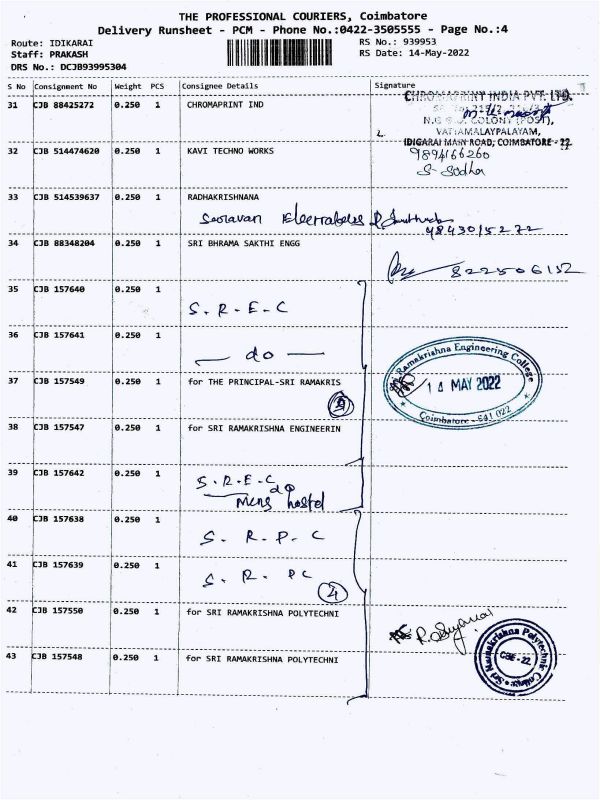 THE PROFESSIONAL COURIERS, Coimbatore
Delivery Runsheet - PCM - Phone No.:0422-3505555 - Page No.:4
Route: IDIKARAI
RS No.: 939953
Staff: PRAKASH
RS Date: 14-May-2022
DRS No.: DCJB93995304
S No Consignment No Weight PCS Consignee Details Signature
31 CJB 88425272 0.250 1 CHROMAPRINT IND
CHROMAPRINT INDIA PVT. LTD.
N.G.G.O. COLONY (POST),
VATTAMALAYPALAYAM,
IDIGARAI MAIN ROAD, COIMBATORE - 22.
32 CJB 514474620 0.250 1 KAVI TECHNO WORKS
9894166260
S. Sodha
33 CJB 514539637 0.250 1 RADHAKRISHNANA
Saravan
9843015272
34 CJB 88348204 0.250 1 SRI BHRAMA SAKTHI ENGG
822506152
35 CJB 157640 0.250 1
S. R. E. C
36 CJB 157641 0.250 1
— do —
37 CJB 157549 0.250 1 for THE PRINCIPAL-SRI RAMAKRIS
Sri Ramakrishna Engineering College
14 MAY 2022
Coimbatore - 641 022
38 CJB 157547 0.250 1 for SRI RAMAKRISHNA ENGINEERIN
39 CJB 157642 0.250 1
S. R. E. C
do
Mens hostel
40 CJB 157638 0.250 1
S. R. P. C
41 CJB 157639 0.250 1
S. R. PC
4
42 CJB 157550 0.250 1 for SRI RAMAKRISHNA POLYTECHNI
43 CJB 157548 0.250 1 for SRI RAMAKRISHNA POLYTECHNI
Sri Ramakrishna Polytechnic College
CBE - 22